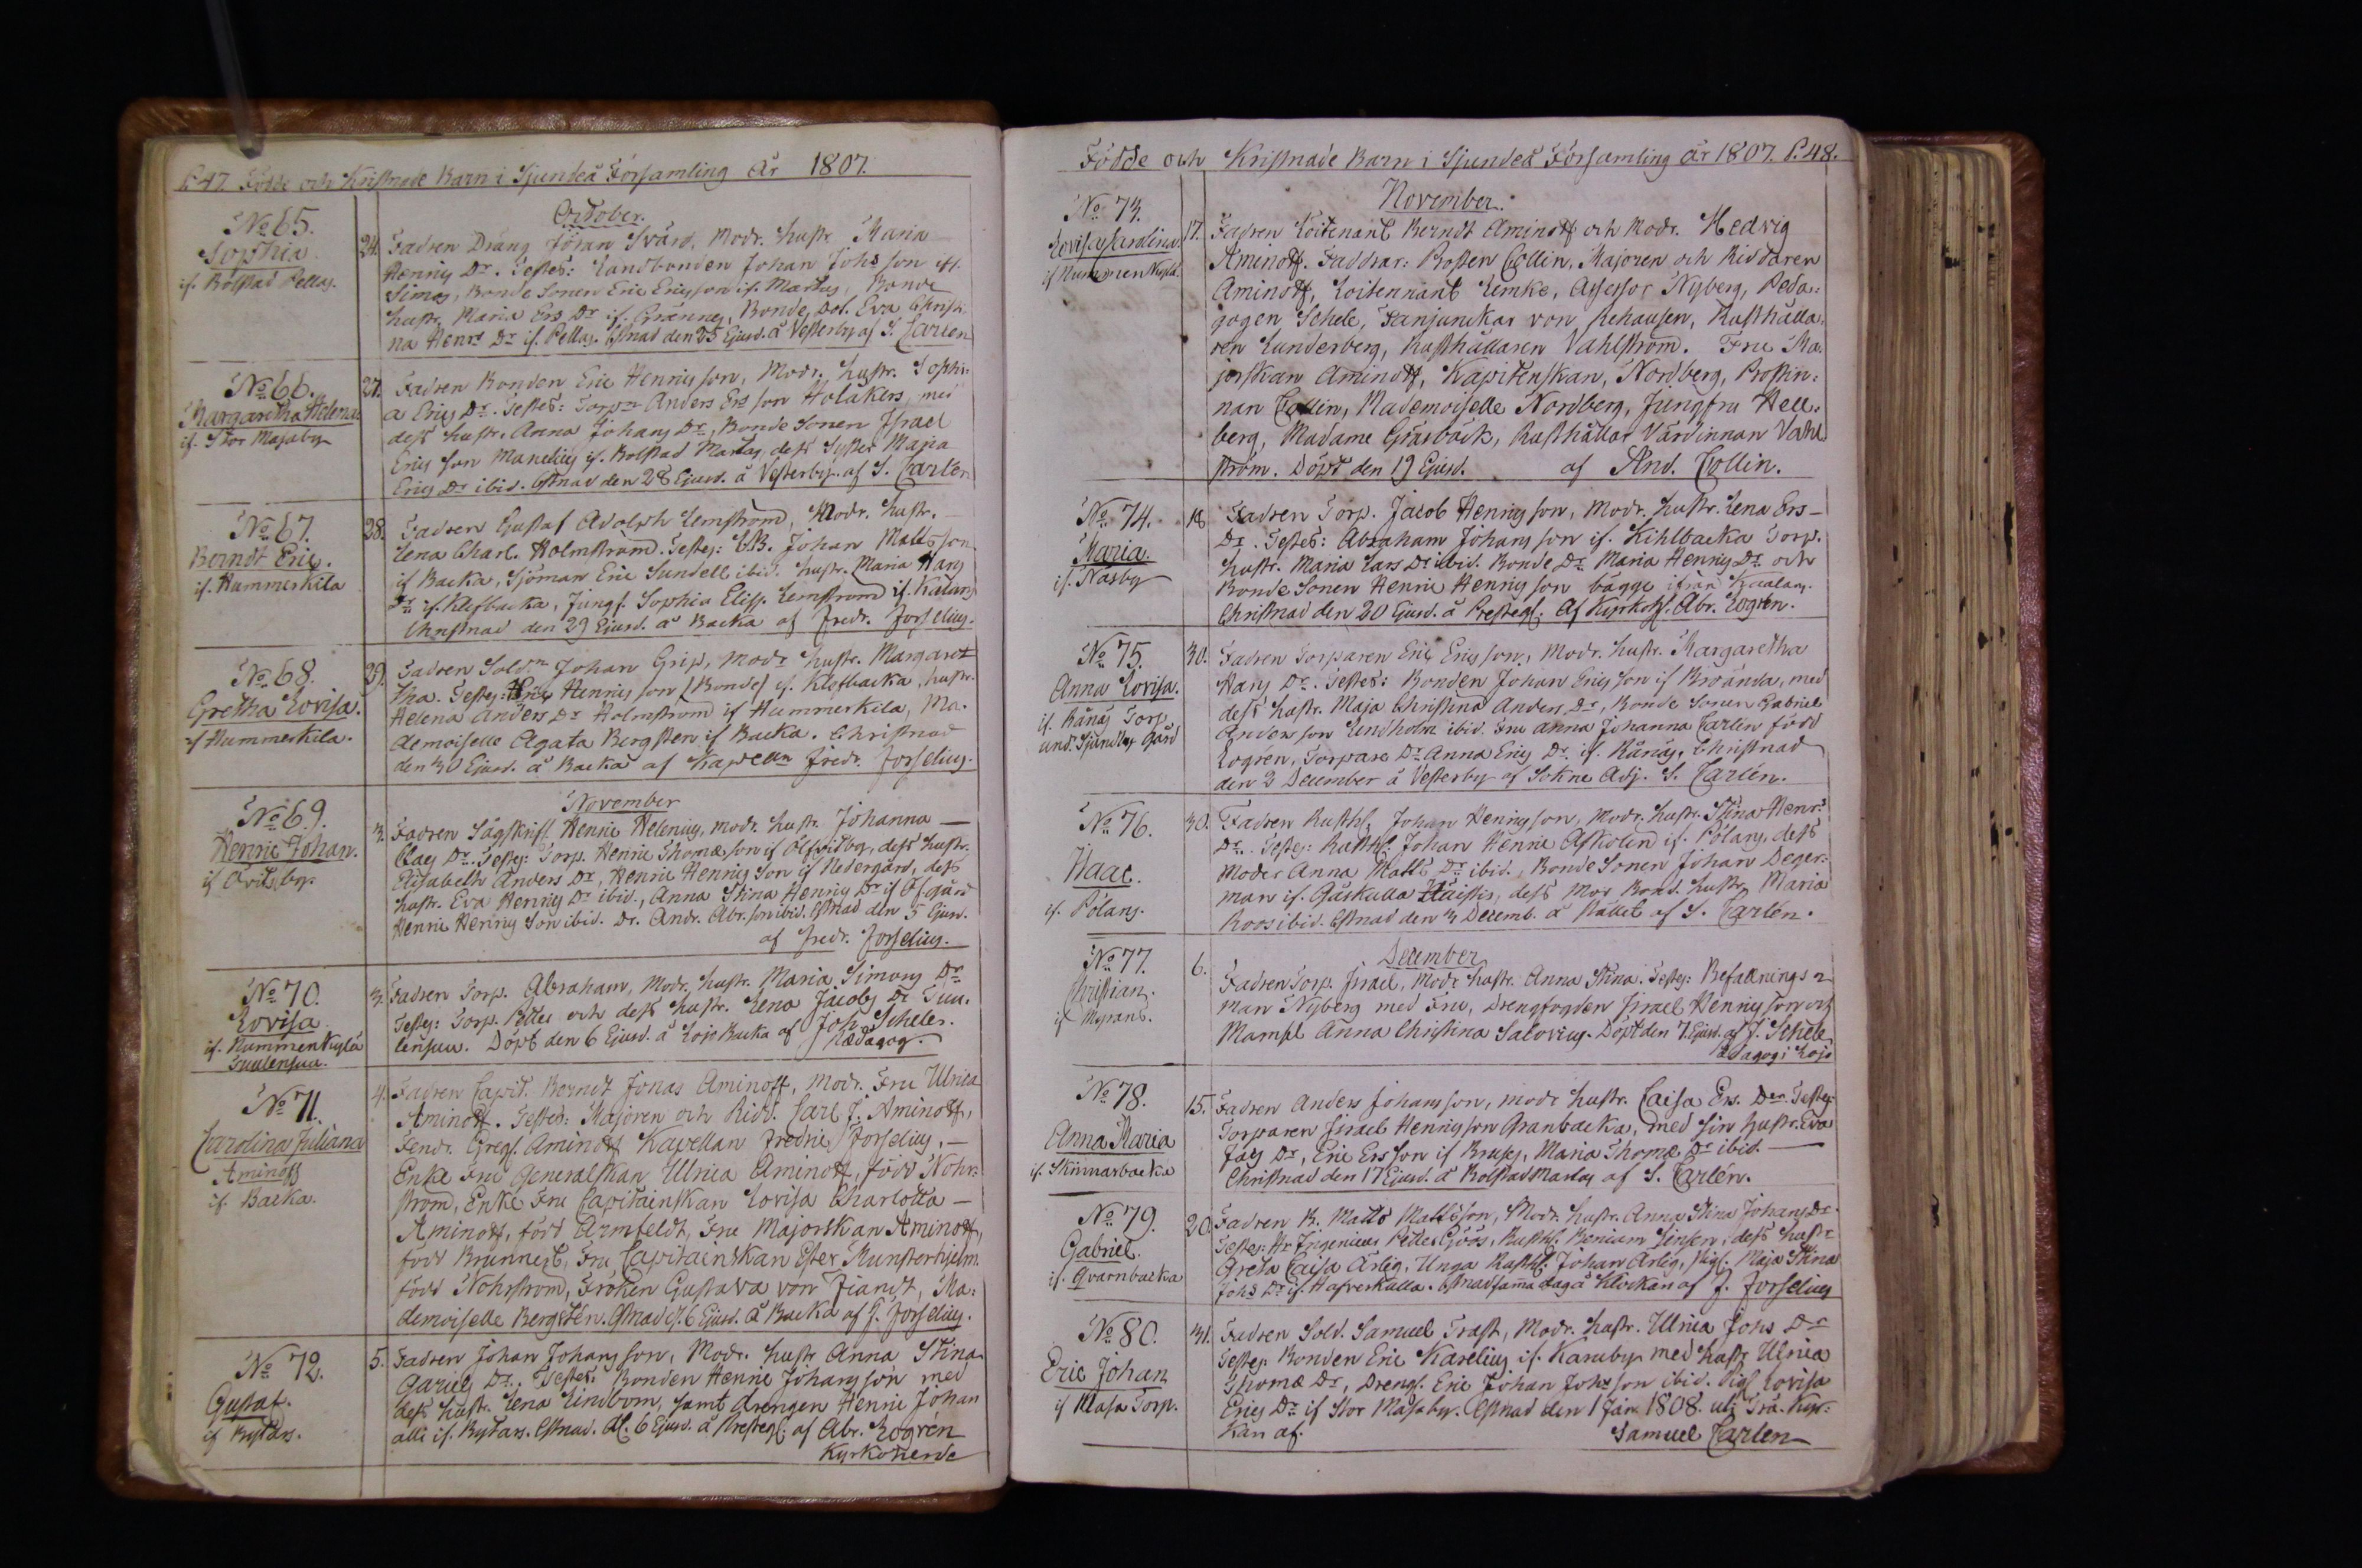 P. 47. Födde och Kristnade Barn i Sjundeå Församling År 1807.
October.
No 65.
Sophia
if. Bölstad Pellas.
24. Fadren Dräng Jöran Svärd, Modr. hustr. Maria
Hennis Dr. Testes: Landbonden Johan Johs son if.
Simos, Bonde Sonen Eric Ericsson if. Martus, Bonde
hustr. Maria Ers Dr if. Grännes, Bonde Dot. Eva Christi-
na Henrs Dr if. Pellas. Cstnad den 25 Ejusd. å Vesterby af S. Carlén
No 66.
Margaretha Helena
if. Stor Majaby
27. Fadren Bonden Eric Hennis son, Modr. hustr. Sophi-
a Erics Dr. Testes: Torpr Anders Ers son Holåkers, med
dess hustr. Anna Johans Dr, Bonde Sonen Israel
Erics son Manelius if. Bolstad Martas, dess Syster Maria
Erics Dr ibid. Cstnad den 28 Ejusd. å Vesterby. af S. Carlén
No 67.
Berndt Eric.
if. Hummerkila
28. Fadren Gustaf Adolph Lemström, Modr. hustr.
Lena Charl. Holmström. Testes: L.B. Johan Mattsson
if Backa, Sjöman Eric Sundell ibid. hustr. Maria Hans
Dr if. Klefbacka, Jungf. Sophia Elis. Lemström if. Kalans
Christnad den 29 Ejusd. å Backa af Fredr. Forselius.
No 68.
Gretha Lovisa.
if Hummerkila.
29. Fadren Soldn Johan Grip, Modr hustr. Margaret
tha. Testes: Eric Hennis son (Bonde) if. Klefbacka, hustr.
Helena Anders Dr Holmström if Hummerkila, Ma-
demoiselle Agata Bergsten if Backa. Christnad
den 30 Ejusd. å Backa af Kapelln Fredr. Forselius.
November
No 69.
Henric Johan.
if Ovitsby.
3. Fadren Sågskrif. Henric Helenius, modr. hustr. Johanna —
Claes Dr. Testes: Torp. Henric Thomæ son if Ofvitby, dess hustr.
Elisabeth Anders Dr, Henric Hennis Son if Nedergård, dess
hustr. Eva Hennis Dr ibid., Anna Stina Hennis Dr if Ofgård
Henric Hennis Son ibid. Dr. Andr. Abr. son ibid. Cstnad den 5 Ejusd.
af Fredr. Forselius.
No 70.
Lovisa
if. Nummenkylä
Tuulensuu.
3. Fadren Torp. Abraham, Modr. hustr. Maria Simons Dr
Testes: Torp. Petter och dess hustr. Lena Jacobs Dr Tuu-
lensuu. Döpt den 6 Ejusd. å Lojo Backa af Joh. Scheler.
Pædagog.
No 71.
Carolina Juliana
Aminoff
if. Backa.
4. Fadren Capit. Berndt Jonas Aminoff, Modr. Fru Ulrica
Aminoff. Testes: Majoren och Ridd. Carl F. Aminoff,
Fendr. Gregs. Aminoff Kapellan Fredric Forselius, —
Enke Fru Generalskan Ulrica Aminoff, född Nohr-
ström, Enke Fru Capitainskan Lovisa Charlotta —
Aminoff, född Armfeldt, Fru Majorskan Aminoff,
född Brunnert, Fru Capitainskan Ester Munsterhjelm
född Nohrström, Fröken Gustava von Fiandt, Ma-
demoiselle Bergstén. Cstnad d. 6 Ejusd. å Backa af F. Forselius.
No 72.
Gustaf.
if Kystars.
5. Fadren Johan Johans son, Modr. hustr Anna Stina
Gariels Dr. Testes: Bonden Henric Johans son med
dess hustr. Lena Lindbom, samt drengen Henric Johan
alle if. Kystars. Cstnad. d. 6 Ejusd. å Presteg: af Abr. Logrén
Kyrkoherde
Födde och Kristnade Barn i Sjundeå Församling år 1807. P. 48.
November.
No 73.
Lovisa Carolina.
if Nummenkylä.
17. Fadren Loitenant Berndt Aminoff och Modr. Hedvig
Aminoff. Faddrar: Prosten Collin, Majoren och Riddaren
Aminoff, Loitennant Lemke, Assessor Nyberg, Peda-
gogen Schele, Fanjunckar von Rehausen, Rusthålla-
ren Lunderberg, Rusthållaren Vahlström. Fru Ma-
jorskan Aminoff, Kapitenskan, Nordberg, Prostin-
nan Collin, Mademoiselle Nordberg, Jungfru Hell-
berg, Madame Gräsbäck, Rusthållar Värdinnan Vahl-
ström. Döpt den 19 Ejusd. af And. Collin.
No 74.
Maria.
if. Näsby
18 Fadren Torp. Jacob Hennis son, Modr. hustr. Lena Ers-
Dr. Testes: Abraham Johans son if. Kihlbacka Torp.
hustr. Maria Lars Dr ibid. Bonde Dr Maria Hennis Dr och
Bonde Sonen Henric Hennis son bägge ifrån Kaalans.
Christnad den 20 Ejusd. å Presteg: Af Kyrkoh. Abr. Logrén.
No 75.
Anna Lovisa.
if. Rånäs Torp
und. Sjundby Gård
30. Fadren Torparen Eric Erics son, Modr. hustr. Margaretha
Hans Dr. Testes: Bonden Johan Erics son if Broända, med
dess hustr. Maja Christina Anders Dr, Bonde Sonen Gabriel
Anders son Lindholm ibid. Fru Anna Johanna Carlén född
Logrén, Torpare Dr Anna Erics Dr if. Rånäs. Christnad
den 2 December å Vesterby af Sokne Adj. S. Carlén.
No 76.
Isaac.
if. Pölans.
30. Fadren Rusth: Johan Hennis son, Modr. hustr. Stina Henrs
Dr. Testes: Rusth: Johan Henric Afholin if. Pölans, dess
Moder Anna Matts Dr ibid. Bonde Sonen Johan Deger-
man if. Gåskulla Staffis, dess Mor Bond. hustr. Maria
Roos ibid. Cstnad den 3 Decemb. å Stället af S. Carlén.
December
No 77.
Christian.
if Myrans.
6. Fadren Torp. Israel, Modr hustr. Anna Stina. Testes: Befallnings-
man Nyberg med Fru, Drengfogden Israel Hennis son och
Mamsl Anna Christina Salovius. Döpt den 7. Ejusd. af J. Schele
Pædagog i Lojo
No 78.
Anna Maria
if. Skinnarbacka
15. Fadren Anders Johans son, modr hustr. Caisa Ers. Dr. Testes:
Torparen Israel Hennis son Granbacka, med sin hustr. Eva
Jacs Dr, Eric Ers son if Bruses, Maria Thomæ Dr ibid. —
Christnad den 17 Ejusd. å Bolstad Martas af S. Carlén.
No 79.
Gabriel.
if. Qvarnbacka
20. Fadren B. Matts Mattsson, Modr. hustr. Anna Stina Johans Dr.
Testes: Hr Ingenieur Petter Göös, Rusth. Beniam Jinsen, dess hustr
Greta Caisa Ärlig, Unga Rusth: Johan Ärlig, Pigs. Maja Stina
Johs Dr if. Hafverkulla. Cstnad samma dag å Klockan af F. Forselius
No 80.
Eric Johan
if Masa Torp.
31. Fadren Sold. Samuel Trast, Modr. hustr. Ulrica Johs Dr
Testes: Bonden Eric Karelius if. Karuby med hustr Ulrica
Thomæ Dr, Drengs. Eric Johan Johs son ibid. Pigs Lovisa
Erics Dr if Stor Masaby. Cstnad den 1 Jan 1808. uti Trä. Kyr-
kan af.
Samuel Carlen